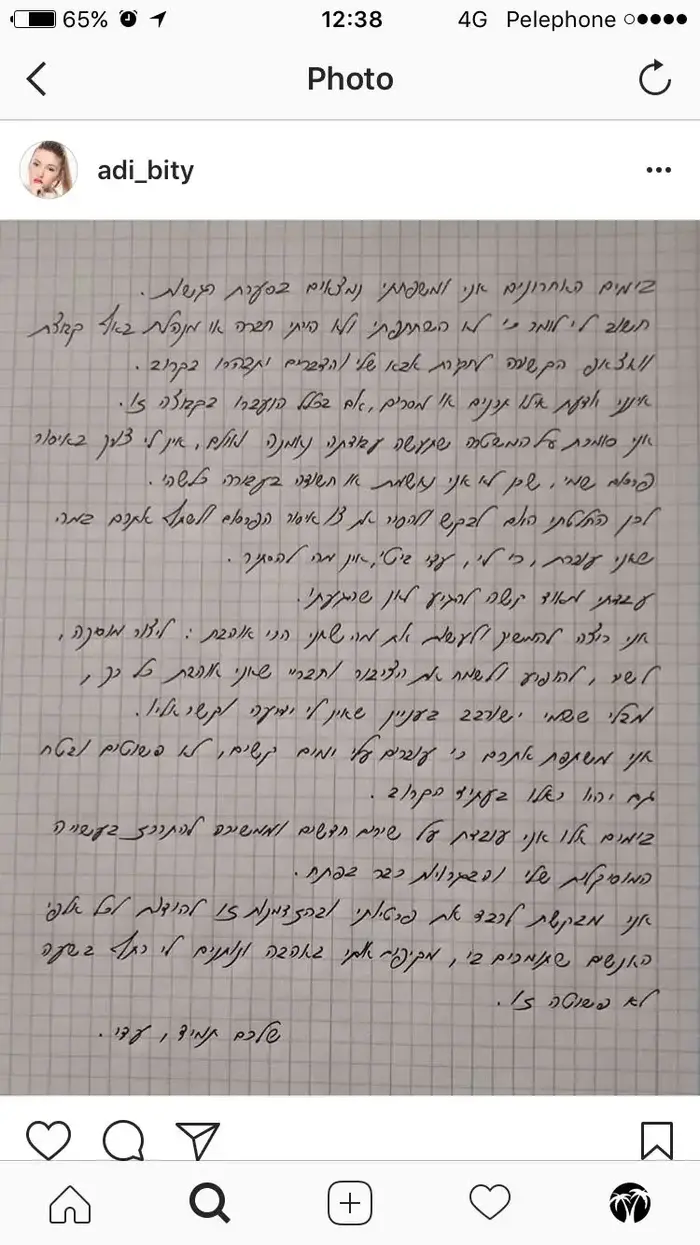 65% 12:38 4G Pelephone
Photo
adi_bity
בימים האחרונים אני ומשפחתי נמצאים בסערת רגשות.
חשוב לי לומר כי לא השתתפתי ולא הייתי חברה או מנהלת באף קבוצת
וואצאפ הקשורה לחקירת אבא שלי והדברים יתבהרו בקרוב.
אינני יודעת אילו תכנים או מסרים, אם בכלל הועברו בקבוצה זו.
אני סומכת על המשטרה שתעשה עבודתה נאמנה ואולם, אין לי צורך באיסור
פרסום שמי, שכן לא אני נאשמת או חשודה בעבירה כלשהי.
לכן החלטתי היום לבקש להסיר את צו איסור הפרסום ולשתף אתכם במה
שאני עוברת, כי לי, עדי ביטי, אין מה להסתיר.
עבדתי מאוד קשה להגיע לאן שהגעתי.
אני רוצה להמשיך ולעשות את מה שאני הכי אוהבת: ליצור מוסקה,
לשיר, להופיע ולשמח את הציבור וחבריי שאני אוהבת כל כך,
מבלי ששמי ישורבב בעניין שאין לי ידיעה וקשר אליו.
אני משתפת אתכם כי עוברים עליי ימים קשים, לא פשוטים ובטח
גם יהיו כאלו בעתיד הקרוב.
בימים אלו אני עובדת על שירים חדשים וממשיכה להתרכז בעשייה
המוסיקלית שלי והבגרויות כבר בפתח.
אני מבקשת לכבד את פרטיותי ובהזדמנות זו להודות לכל אלפי
האנשים שתומכים בי, מקיפים אותי באהבה ונותנים לי כתף בשעה
לא פשוטה זו.
שלכם תמיד, עדי.